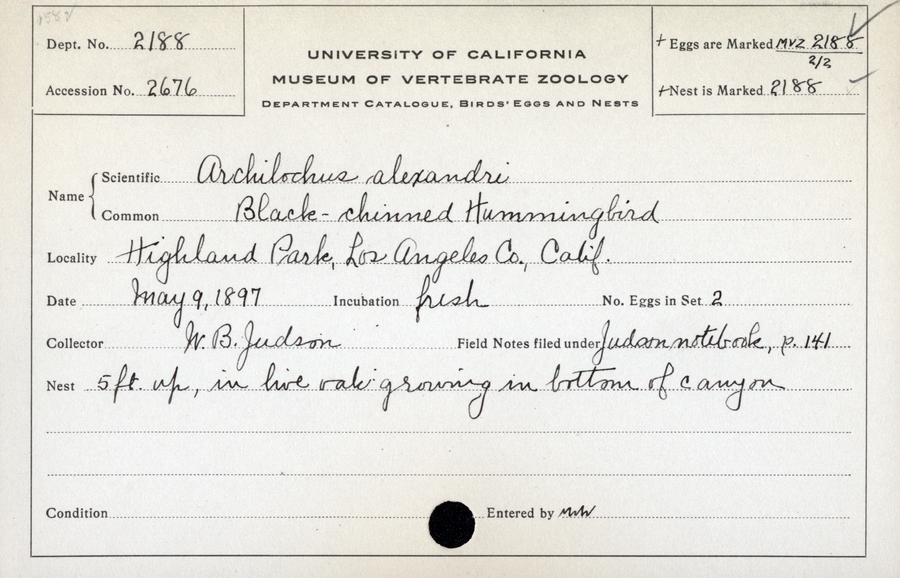 Dept. No. 2188
Accession No. 2676
UNIVERSITY OF CALIFORNIA
MUSEUM OF VERTEBRATE ZOOLOGY
DEPARTMENT CATALOGUE, BIRDS' EGGS AND NESTS
+ Eggs are Marked MVZ 2188
2/2
+ Nest is Marked 2188
Name { Scientific Archilochus alexandri
Common Black-chinned Hummingbird
Locality Highland Park, Los Angeles Co., Calif.
Date May 9, 1897 Incubation fresh No. Eggs in Set 2
Collector W. B. Judson Field Notes filed under Judson notebook, p. 141
Nest 5 ft. up, in live oak growing in bottom of canyon
Condition Entered by